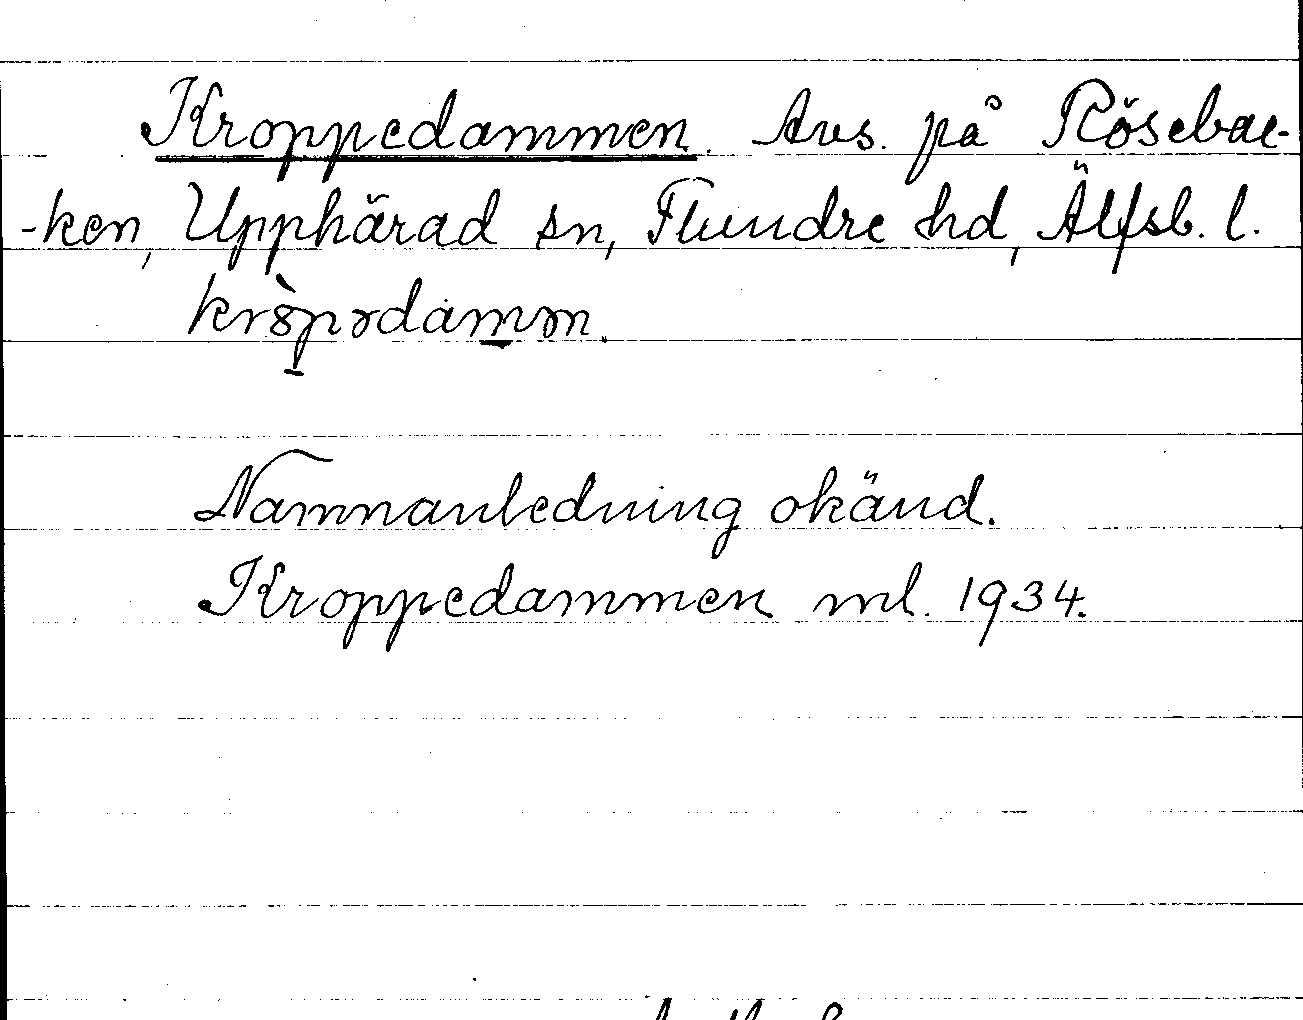 Kroppedammen. Avs. på Rösebac-
-ken, Upphärad sn, Flundre hd, Älfsb. l.
kròpədamən.
Namnanledning okänd.
Kroppedammen ml. 1934.